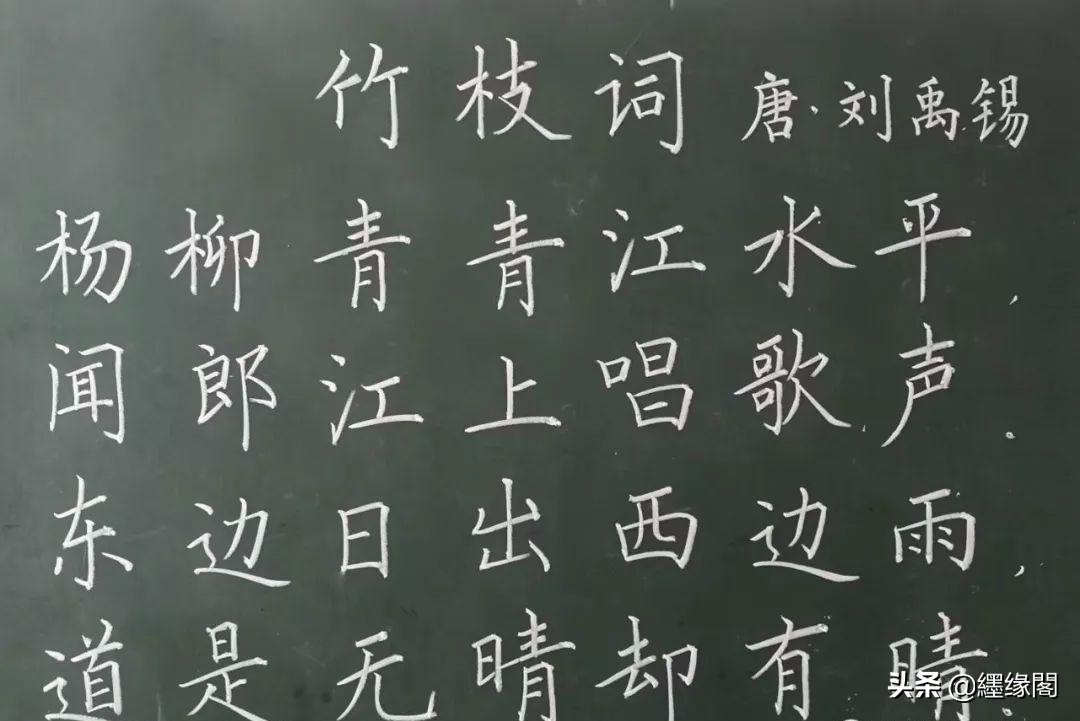 竹枝词 唐·刘禹锡
杨柳青青江水平，
闻郎江上唱歌声。
东边日出西边雨，
道是无晴却有晴。
头条 @纆缘閣